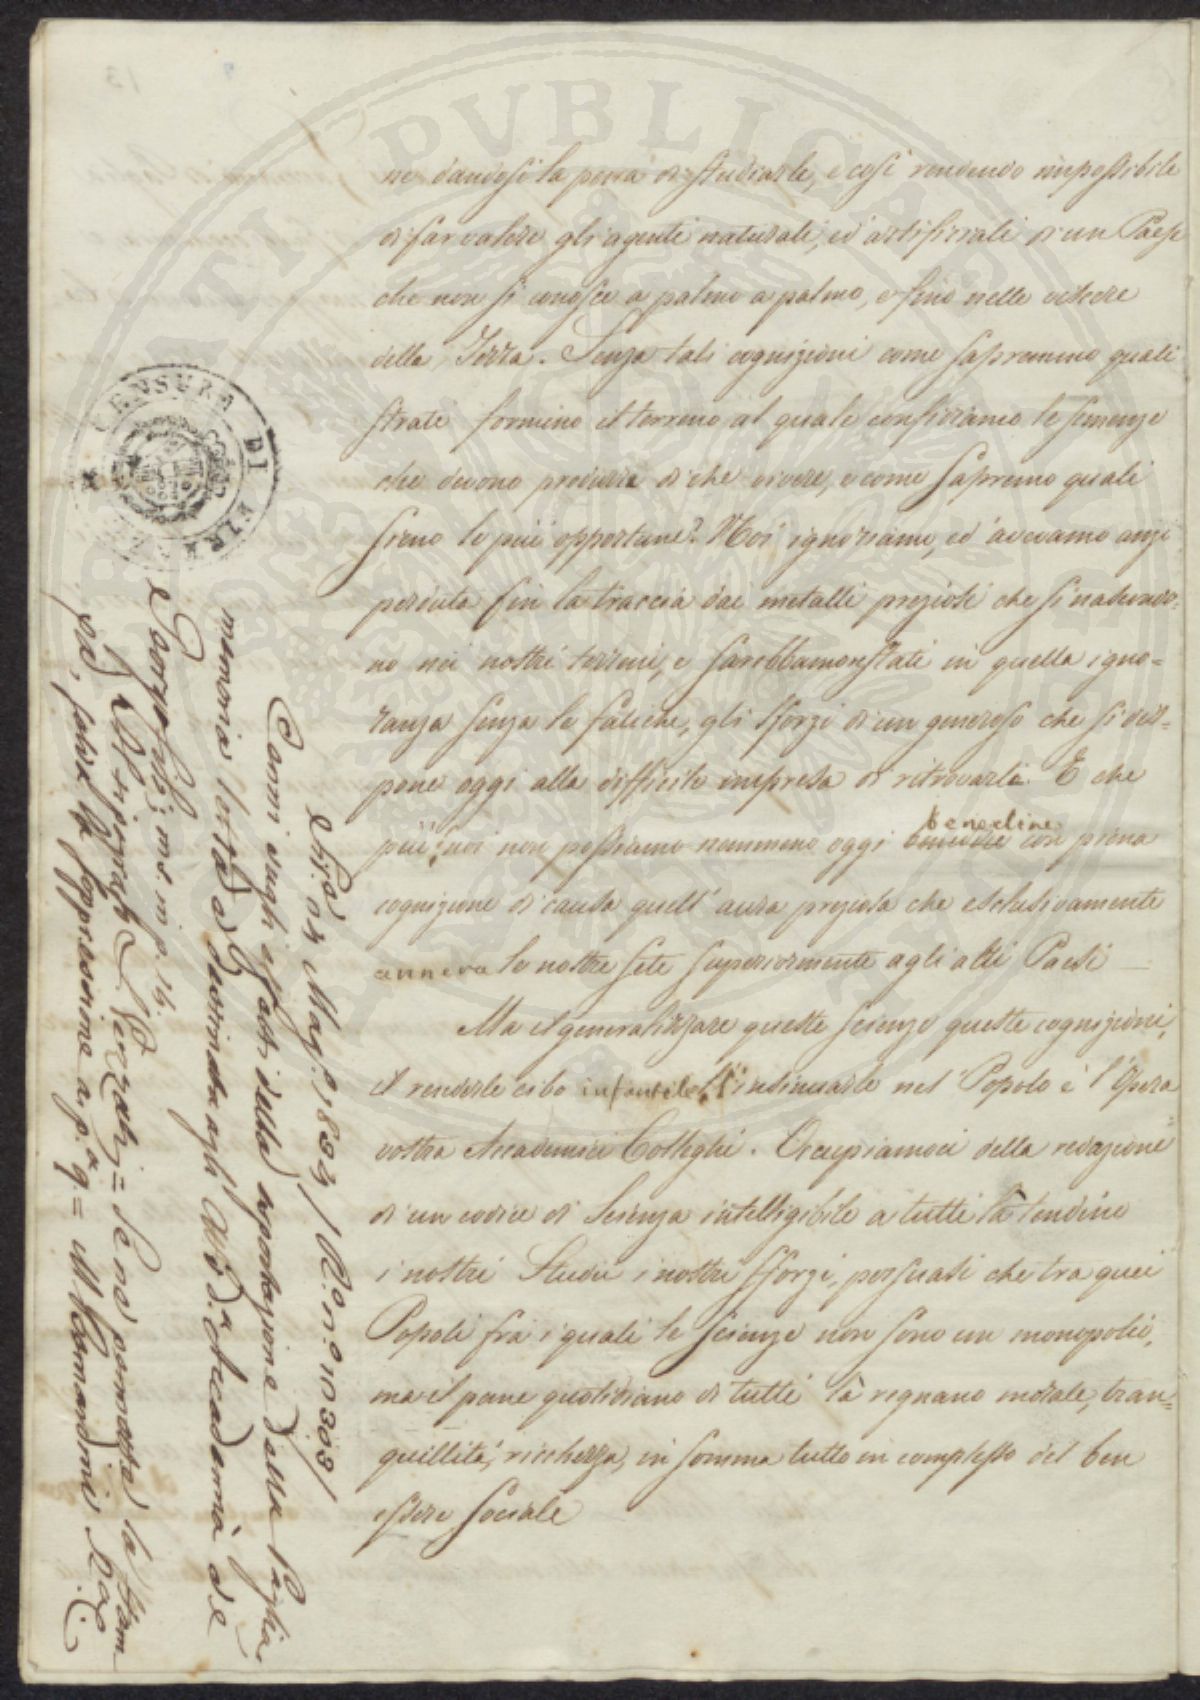 ne dandosi la pena di studiarle, e così rendendo impossibile
di far valere gli agenti naturali, ed artifiziali di un Paese
che non si conosce a palmo a palmo, e fino nelle viscere
della Terra. Senza tali cognizioni come sapremmo quali
strati formino il terreno al quale confidiamo le semenze
che devono produrre di che vivere, e come sapremo quali
sieno le più opportune? Noi ignoriamo, ed avevamo anzi
perduta fin la traccia dei metalli preziosi che si nascondo-
no nei nostri terreni, e saremmo restati in quella igno=
ranza senza le fatiche, gli sforzi di un generoso che si dis=
pone oggi alla difficile impresa di ritrovarli. E che
benedire
più, noi non possiamo nemmeno oggi con piena
cognizione di causa quell'aura preziosa che esclusivamente
annera le nostre sete superiormente agli altri Paesi
Ma il generalizzare queste scienze queste cognizioni,
il renderle cibo infantile, l'insinuarle nel Popolo è l'Opera
vostra Accademici Colleghi. Occupiamoci della redazione
di un codice di Scienza intelligibile a tutti là tendino
i nostri Studii i nostri sforzi, persuasi che tra quei
Popoli fra i quali le scienze non sono un monopolio,
ma il pane quotidiano di tutti là regnano morale, tran=
quillità, ricchezza, in somma tutto in complesso del ben
essere Sociale
CENSURA DI FIRE
a 1834 / R.º n.º 10303 /
Con'i negli affari della deportazione della Paglia
memoria letta a Accademia de
Georgofili; me in p. 16.
= Se ne permette la stam
pa, salva la soppressione a p.ª 9 =
PVBLICAE